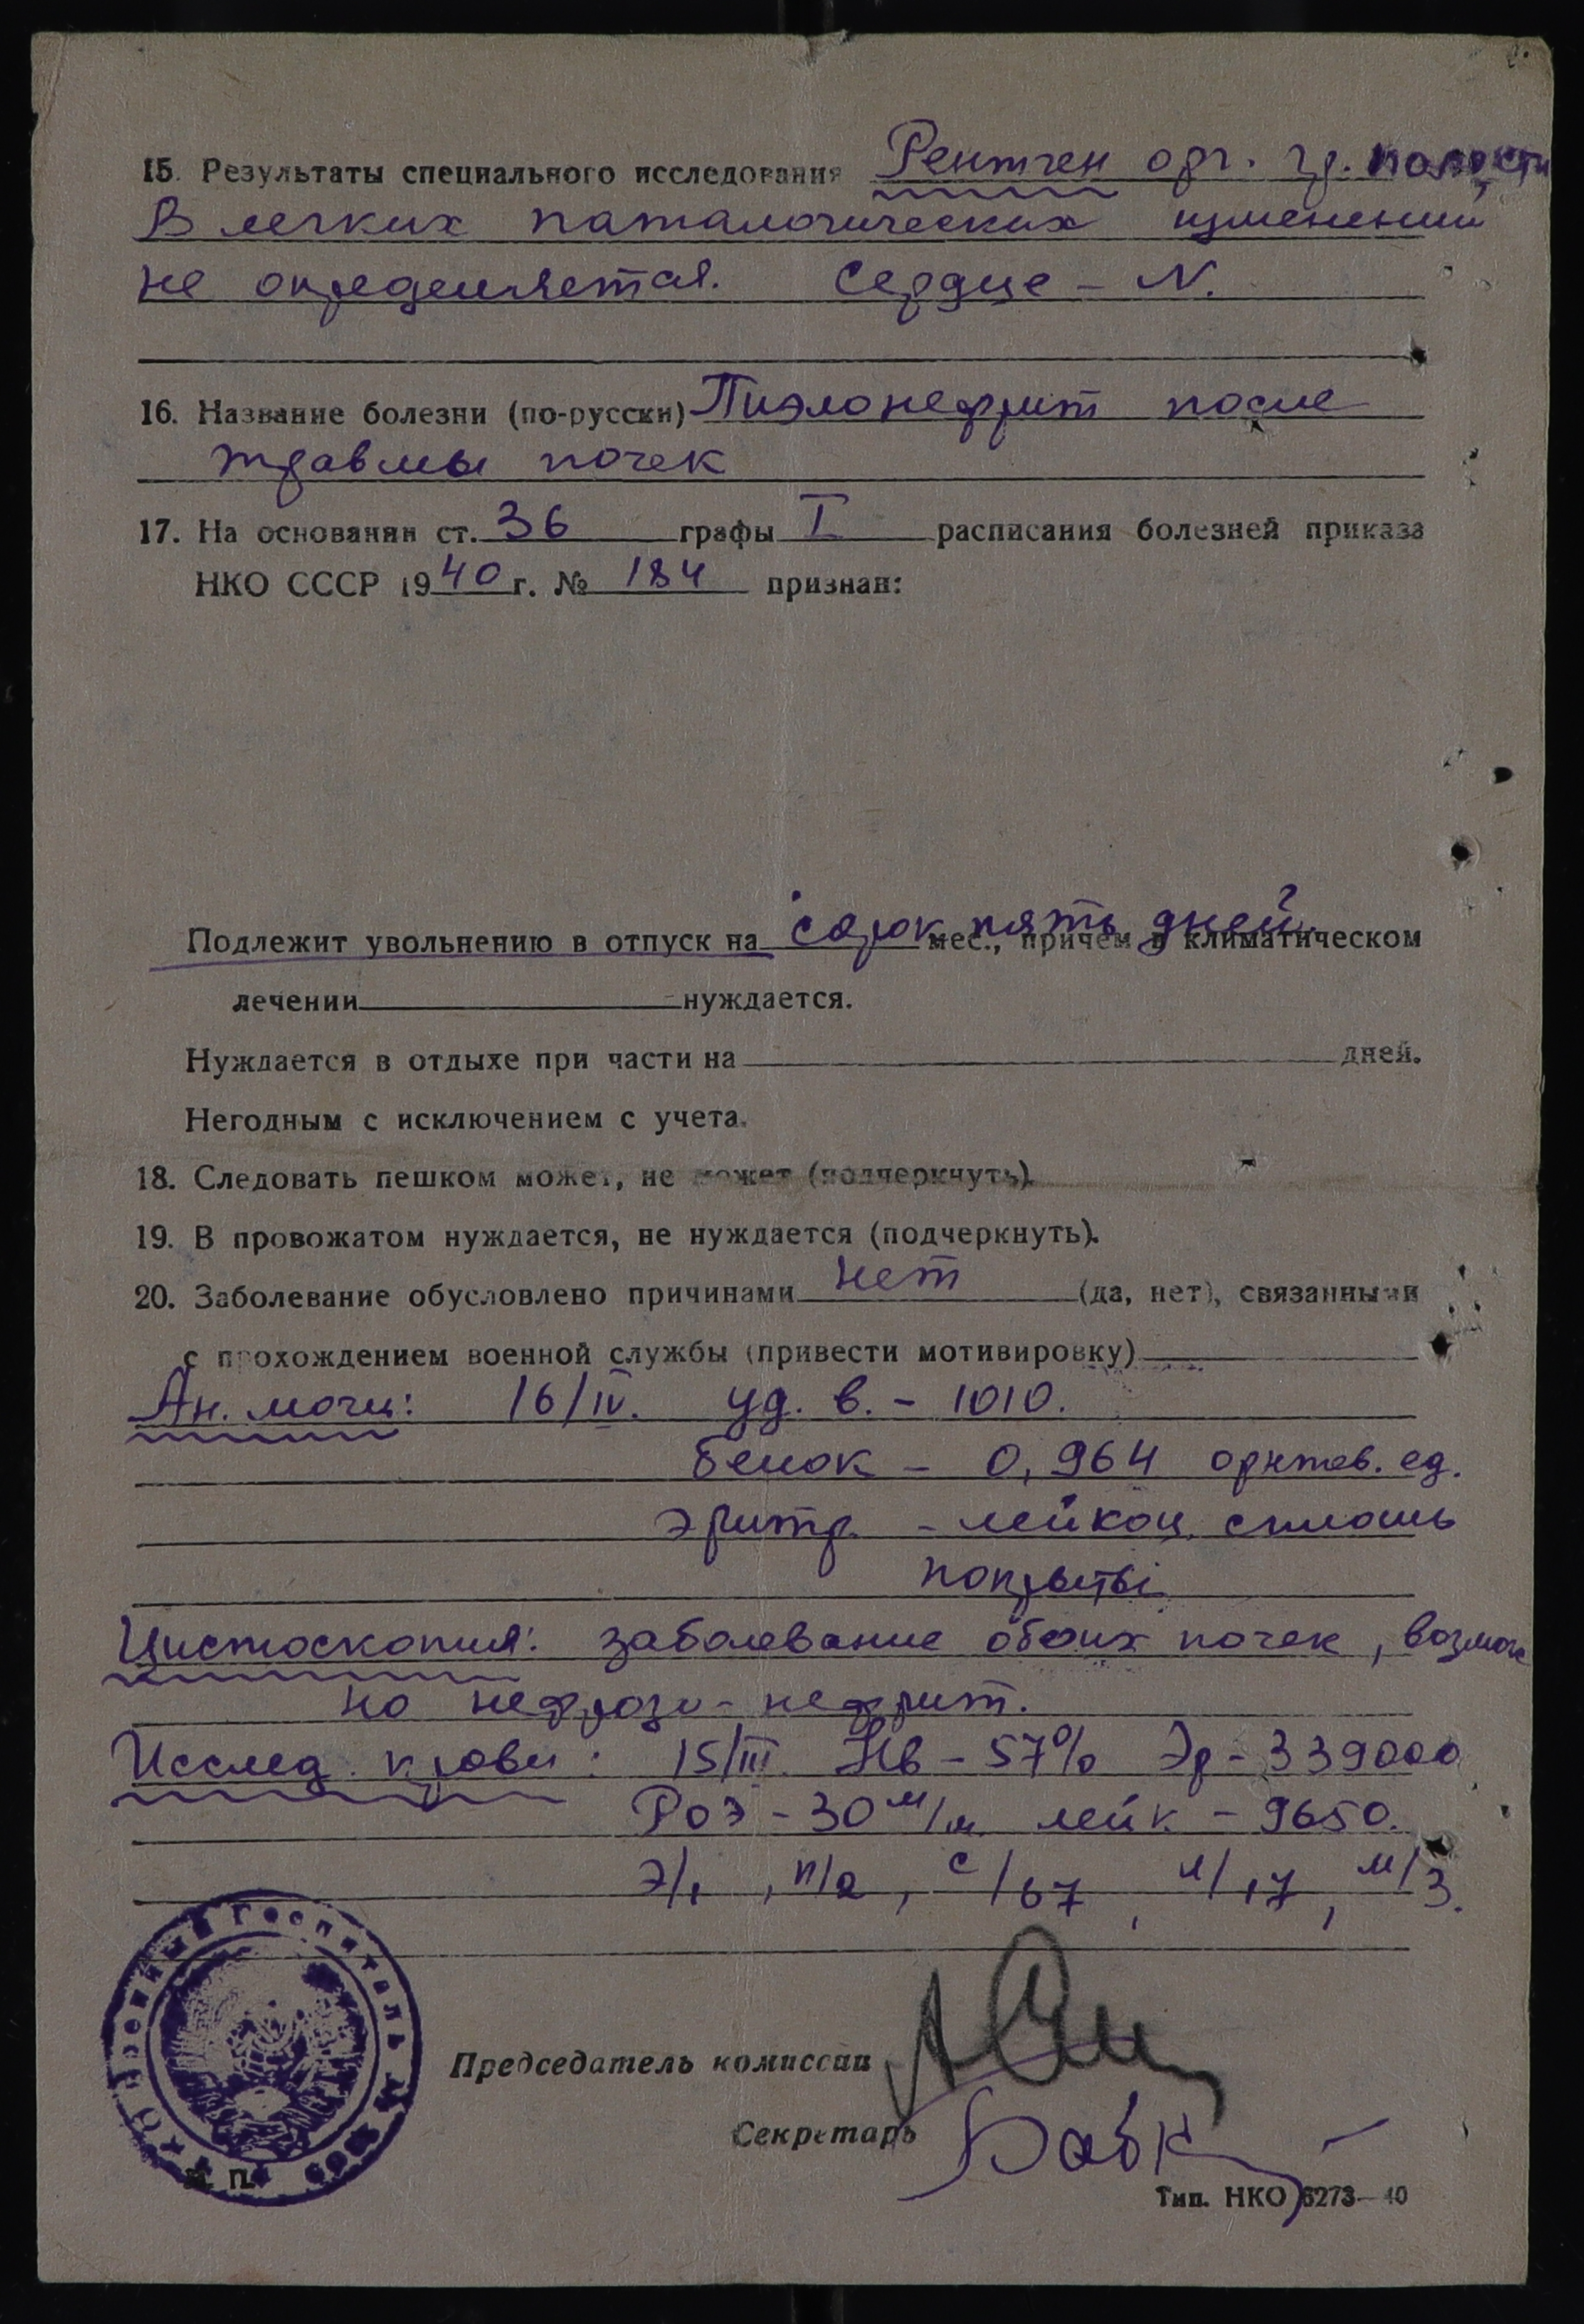 15. Результаты специального исследования Рентген орг. гр. полости
В легких паталогических изменений
не определяется. Сердце – N.
16. Название болезни (по-русски) Пиэлонефрит после
травмы почек
17. На основании ст. 36 графы I расписания болезней приказа
НКО СССР 1940 г. № 184 признан:
Подлежит увольнению в отпуск на сорок пять дней. мес., причем в климатическом
лечении нуждается.
Нуждается в отдыхе при части на дней.
Негодным с исключением с учета.
18. Следовать пешком может, не может (подчеркнуть).
19. В провожатом нуждается, не нуждается (подчеркнуть).
20. Заболевание обусловлено причинами нет (да, нет), связанными
с прохождением военной службы (привести мотивировку)
Ан. мочи: 16/IV. уд. в. – 1010.
белок – 0,964 ед.
эритр. – лейкоц. сплошь
покрыты
Цистоскопия: заболевание обоих почек, возмож
но нефрозо-нефрит.
Исслед. крови: 15/III. Нв – 57% Эр – 339000
РОЭ – 30 м/м лейк – 9650.
Э/1, п/2, с/67, л/17, м/3.
Военный Госпиталь
Председатель комиссии
Секретарь
М. П.
Тип. НКО 6273—40